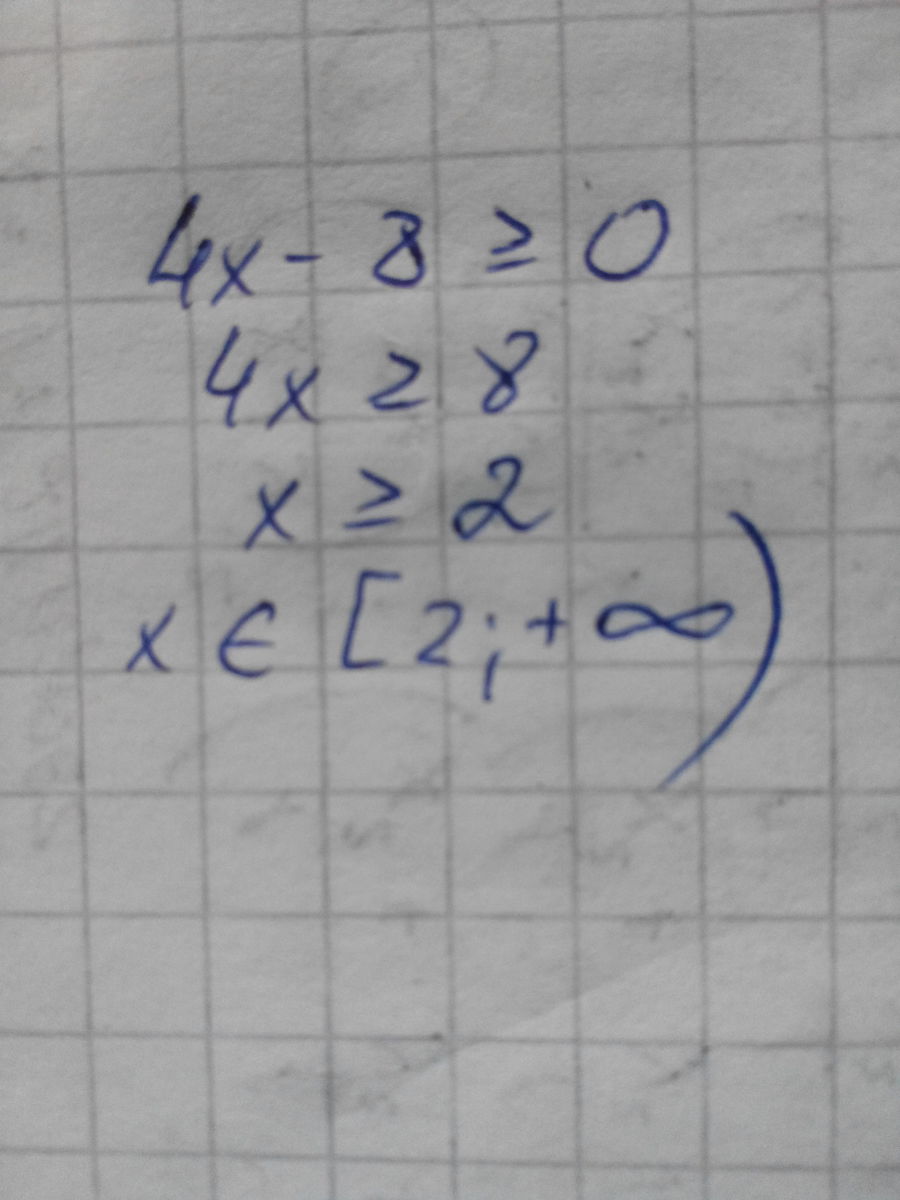 4x - 8 ≥ 0
4x ≥ 8
x ≥ 2
x ∈ [2; +∞)